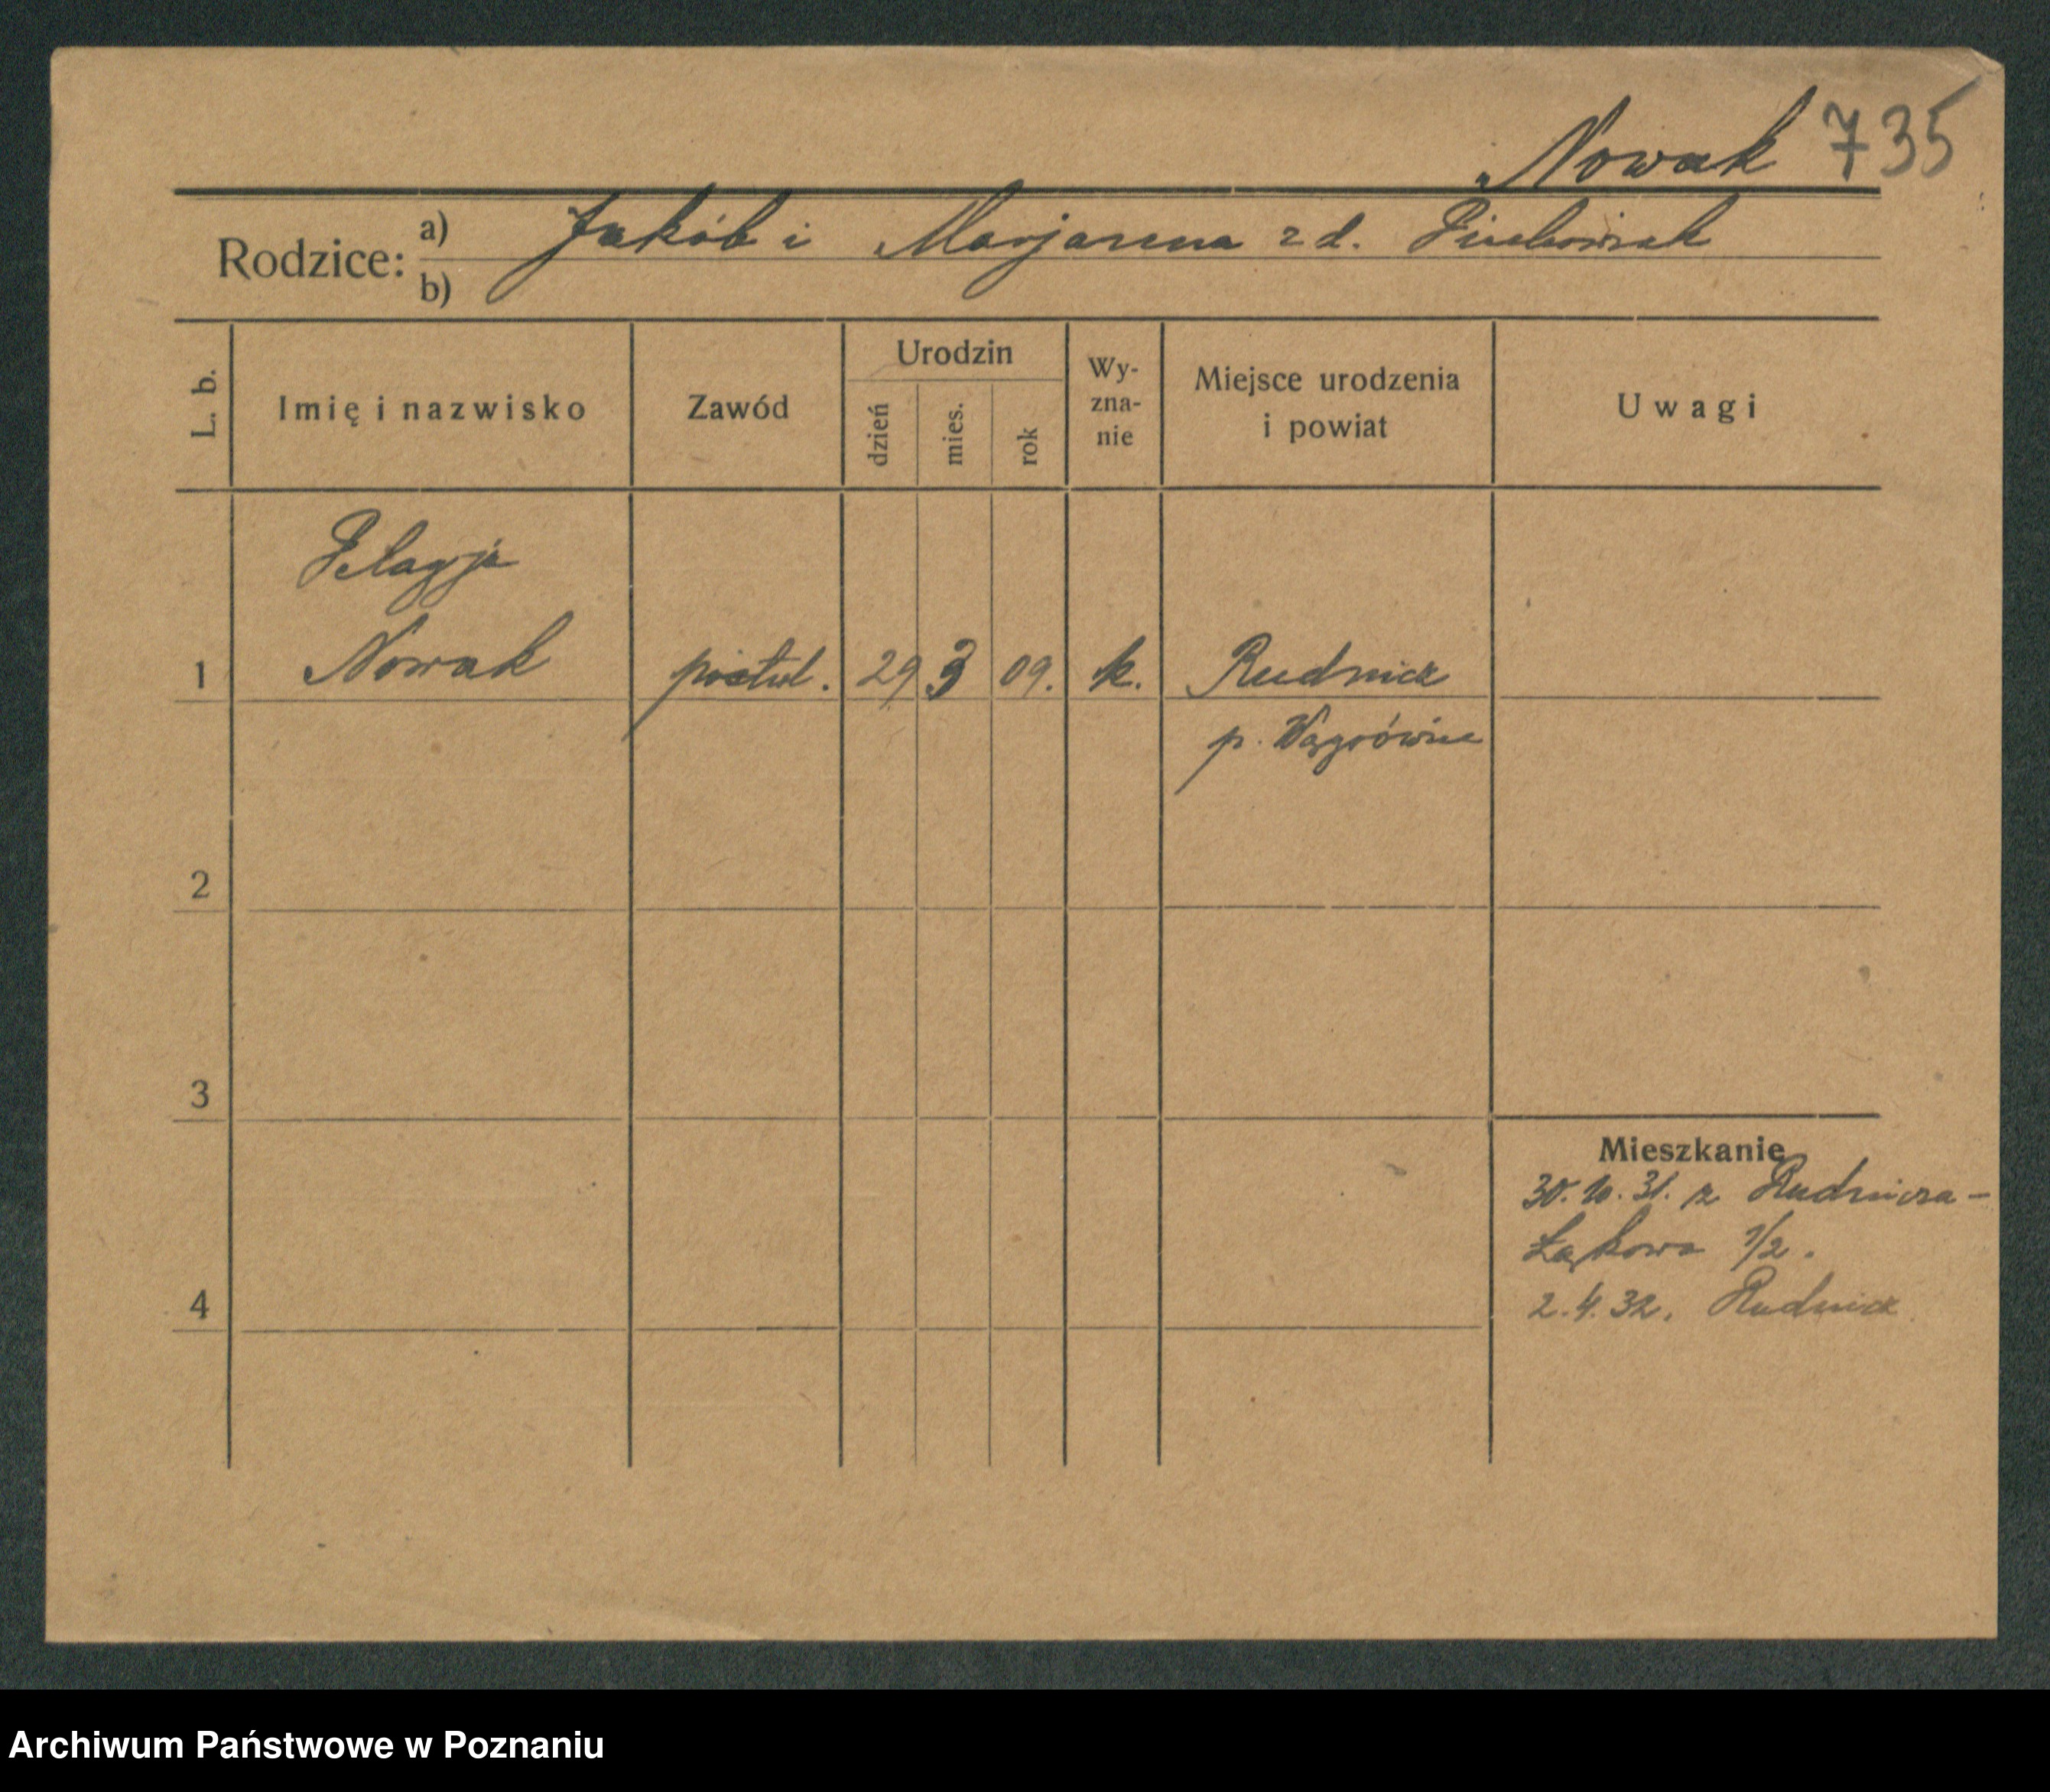 Nowak 735
Rodzice: a) Jakób i Marjanna z d. Piechowiak
b)
L. b. Imię i nazwisko Zawód Urodzin dzień mies. rok Wy-zna-nie Miejsce urodzenia i powiat Uwagi
Pelagja
1 Nowak 29 3 09. k. Rudnicz
p.
2
3
Mieszkanie
30. 10. 31. z Rudnicza -
Łąkowa 1/2.
4 2.4.32. Rudnicz
Archiwum Państwowe w Poznaniu